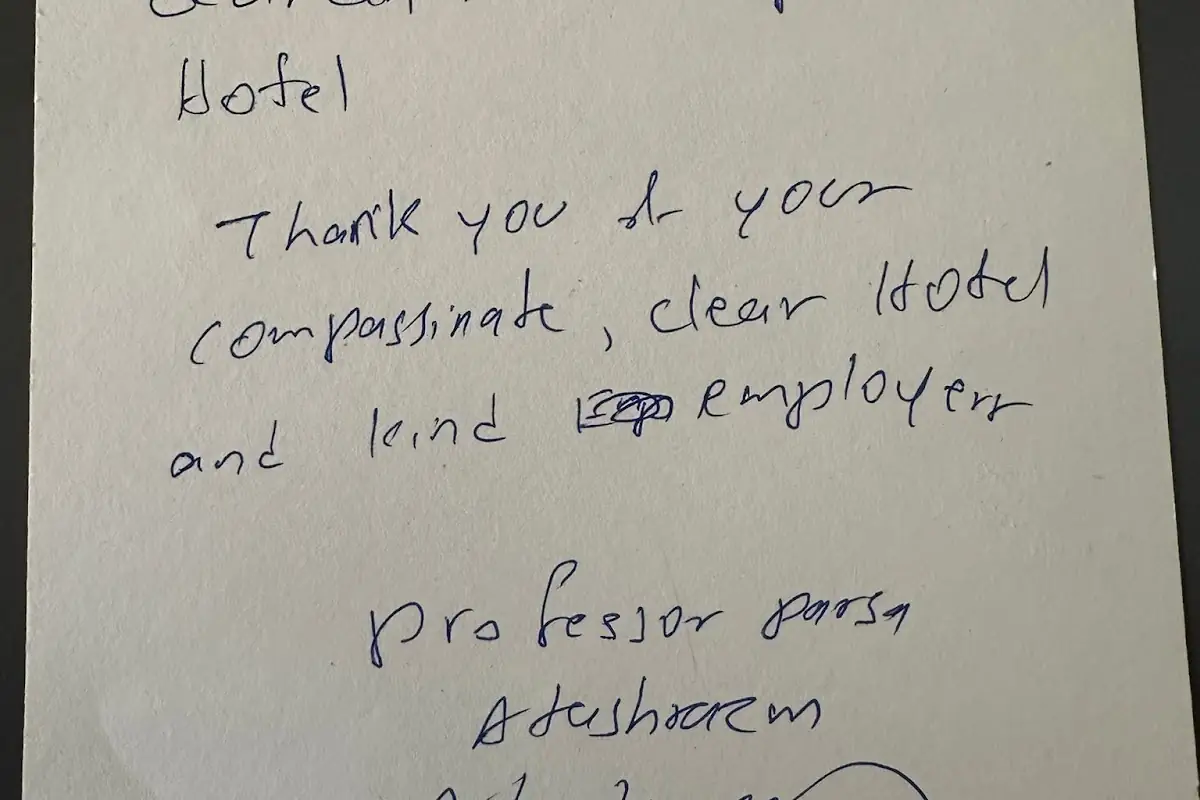 Hotel
Thank you of your
compassinate, clear Hotel
and kind employers
professor parsa